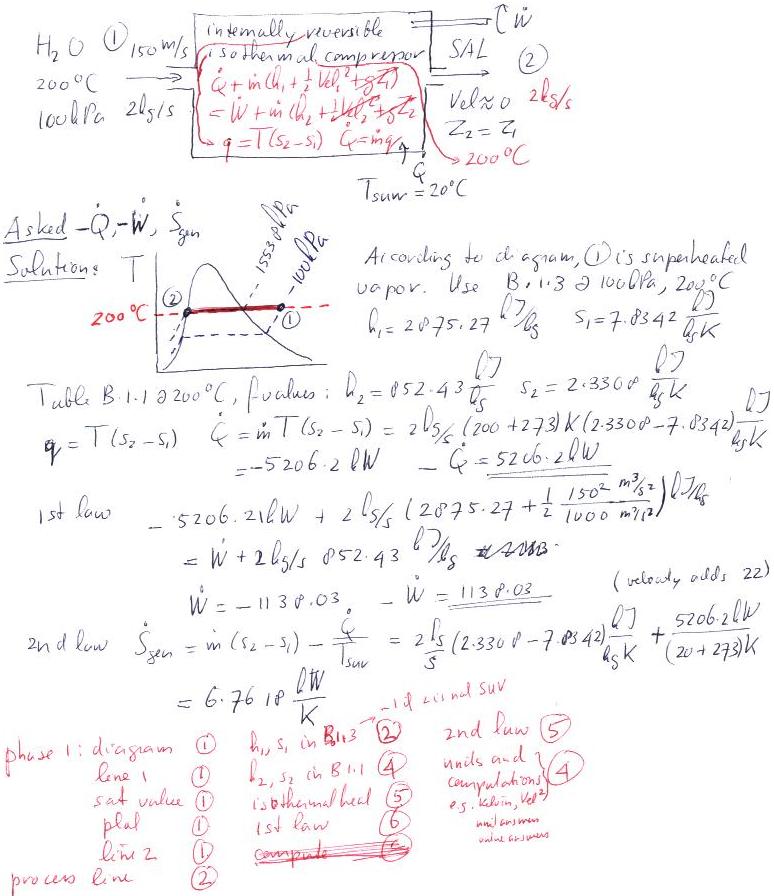 H₂O ① 150 m/s
200°C
100 kPa 2 kg/s
internally reversible
isothermal compressor
Q̇ + ṁ(h₁ + ½ Vel₁² + gZ₁)
= Ẇ + ṁ(h₂ + ½ Vel₂² + gZ₂)
q = T(s₂ − s₁) Q̇ = ṁq
Ẇ
SAL ②
Vel ≈ 0 2 kg/s
Z₂ = Z₁
200°C
Q̇
T surr = 20°C
Asked −Q̇, −Ẇ, Ṡgen
Solution: T
1553.8 kPa
100 kPa
200°C ② ①
According to diagram, ① is superheated
vapor. Use B.1.3 @ 100 kPa, 200°C
h₁ = 2875.27 kJ/kg s₁ = 7.8342 kJ/kg K
Table B.1.1 @ 200°C, f values: h₂ = 852.43 kJ/kg s₂ = 2.3308 kJ/kg K
q = T(s₂ − s₁) Q̇ = ṁT(s₂ − s₁) = 2 kg/s (200 + 273) K (2.3308 − 7.8342) kJ/kg K
= −5206.2 kW − Q̇ = 5206.2 kW
1st law −5206.21 kW + 2 kg/s (2875.27 + ½ 150² m²/s² / 1000 m²/s²) kJ/kg
= Ẇ + 2 kg/s 852.43 kJ/kg
Ẇ = −1138.03 − Ẇ = 1138.03 (velocity adds 22)
2nd law Ṡgen = ṁ(s₂ − s₁) − Q̇/Tsurr = 2 kg/s (2.3308 − 7.8342) kJ/kg K + 5206.2 kW/(20 + 273) K
= 6.7618 kW/K
phase 1: diagram ①
line 1 ①
sat value ①
plot ①
line 2 ①
process line ②
−1 if used surr
h₁, s₁ in B.1.3 ②
h₂, s₂ in B.1.1 ④
isothermal heat ⑤
1st law ⑥
compute
2nd law ⑤
units and
computations ④
e.g. Kelvin, Vel²
unit answers